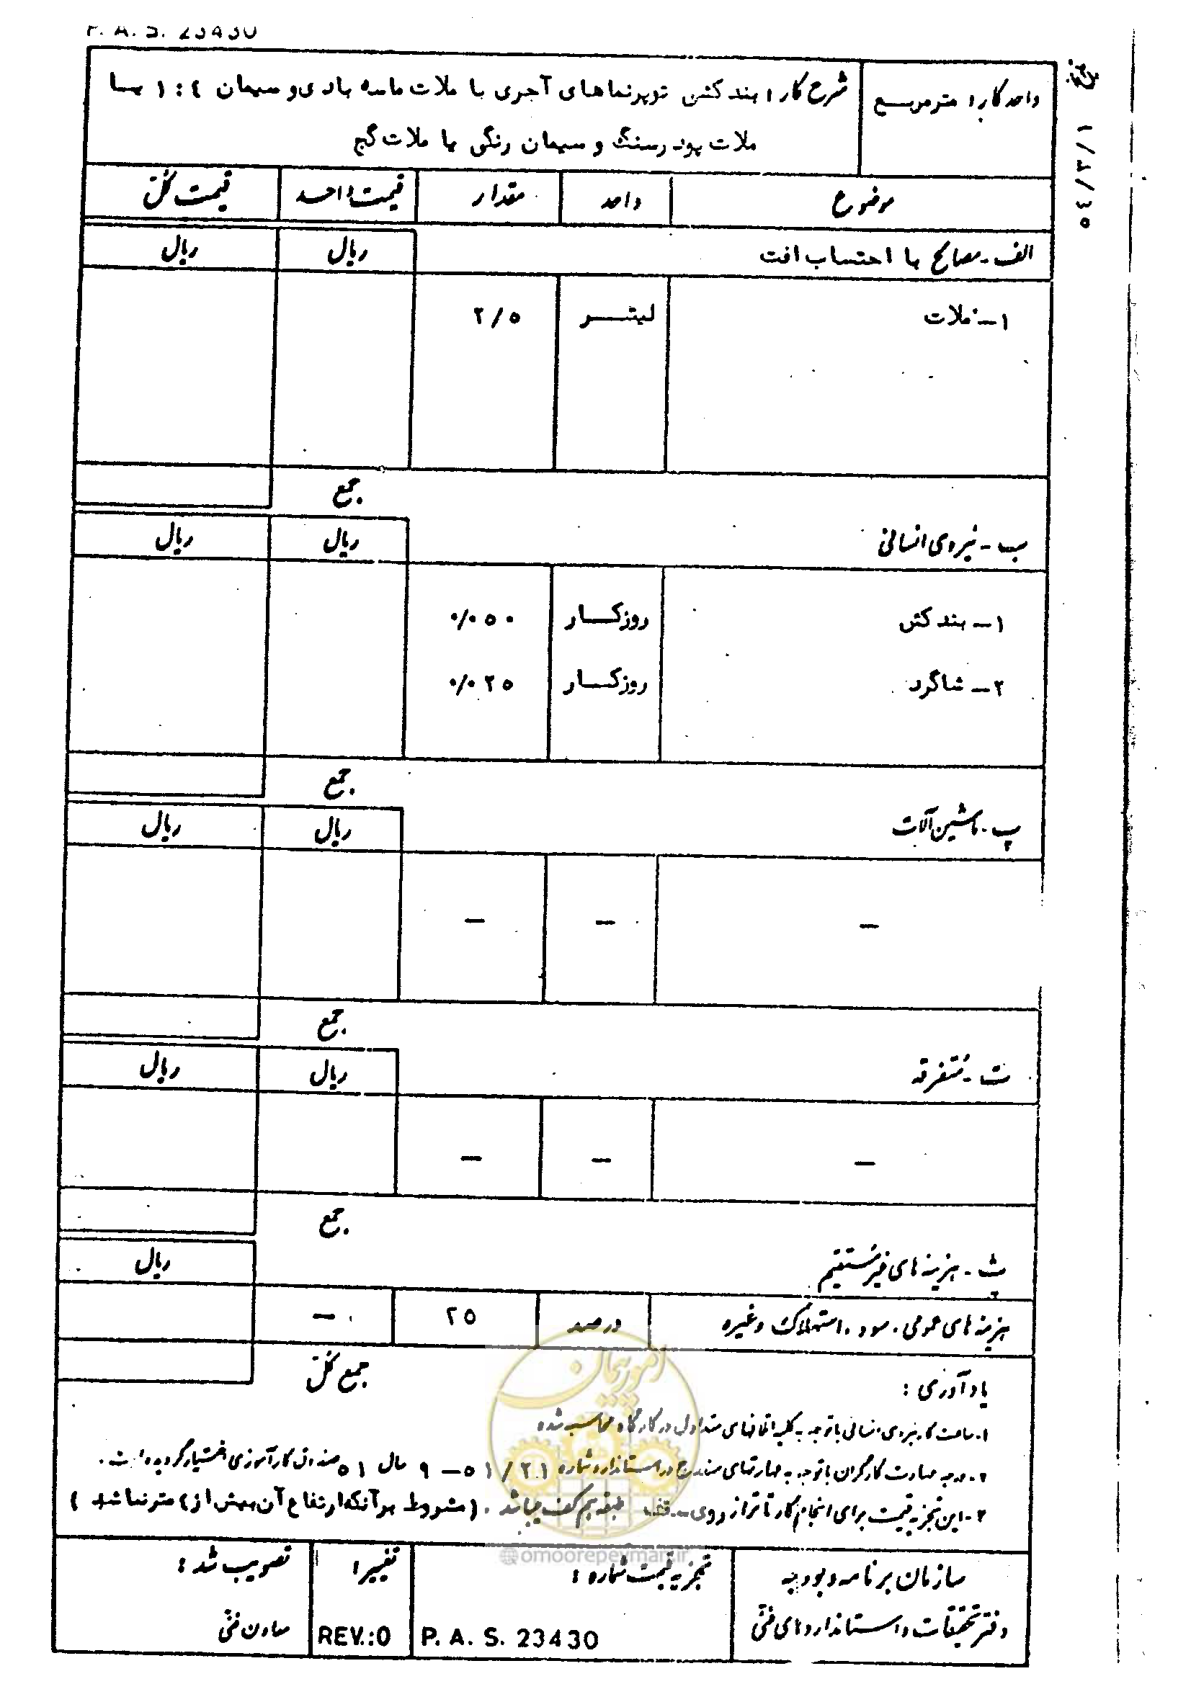 P. A. S. 23430
تاریخ ۱/۳/۴۵
واحد کار : مترمربع
شرح کار : بندکشی توپرنماهای آجری با ملات ماسه بادی و سیمان ۱:۴ یا
ملات پودرسنگ و سیمان رنگی یا ملات گچ
موضوع واحد مقدار قیمت واحد قیمت کل
الف - مصالح با احتساب افت ریال ریال
۱- ملات لیتر ۲/۵
جمع
ب - نیروی انسانی ریال ریال
۱- بندکش روزکار ۰/۰۵۰
۲- شاگرد روزکار ۰/۰۲۵
جمع
پ - ماشین آلات ریال ریال
— — —
جمع
ت - متفرقه ریال ریال
— — —
جمع
ث - هزینه های غیرمستقیم ریال
هزینه های عمومی ، سود ، استهلاک وغیره درصد ۲۵ —
جمع کل
یادآوری :
۱- ساعت کار نیروی انسانی با توجه به کلیه اتفاقهای متداول در کارگاه محاسبه شده
۲- درجه مهارت کارگران با توجه به مهارتهای مندرج در استاندارد شماره ۲۰۱/۱ ۵ – ۹ سال ۵۱ صندوق کارآموزی اختیار گردیده است .
۳- این تجزیه قیمت برای انجام کار تا تراز روی سقف طبقه هم کف میباشد . ( مشروط برآنکه ارتفاع آن بیش از ۴ متر نباشد )
امور پیمان
@omoorepeyman.ir
سازمان برنامه و بودجه
دفتر تحقیقات و استانداردهای فنی
تجزیه قیمت شماره :
P. A. S. 23430
تغییر :
REV.:0
تصویب شد :
معاون فنی